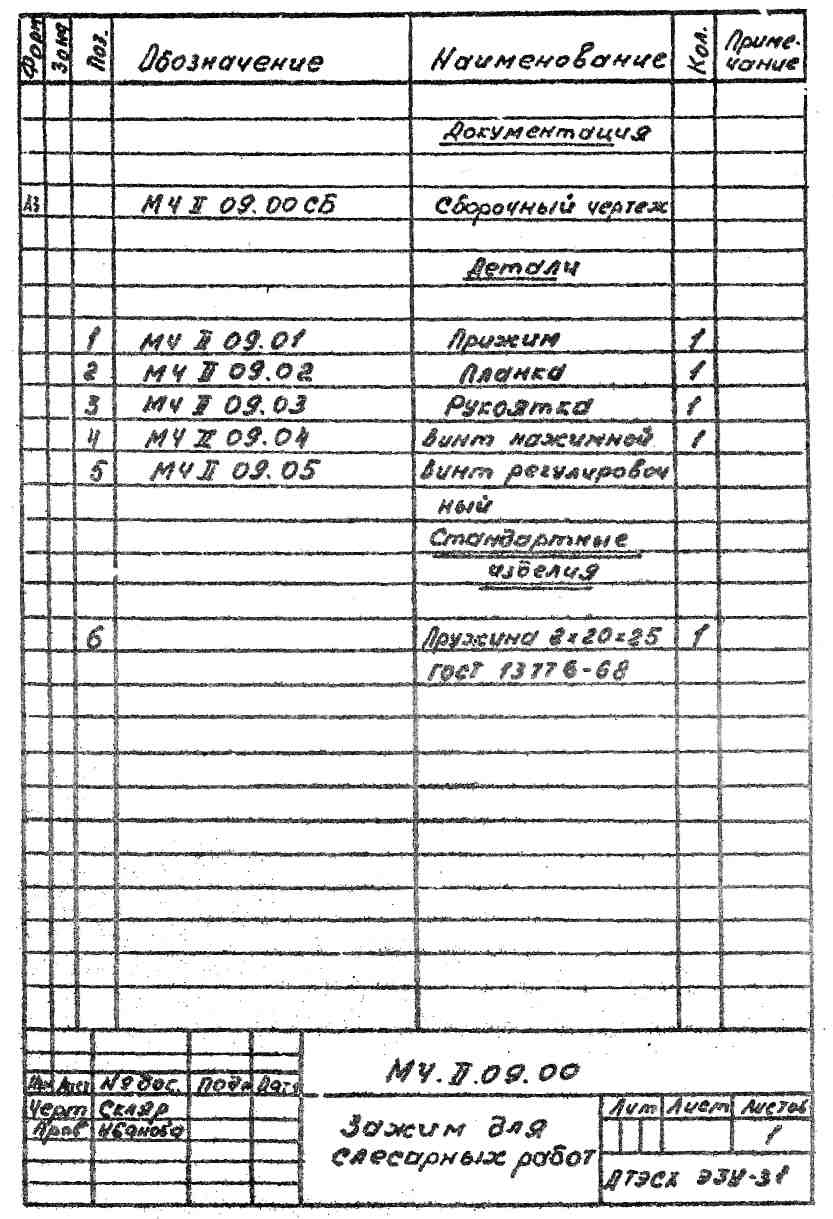 Форм Зона Поз. Обозначение Наименование Кол. Приме-
чание
Документация
А3 МЧ II 09.00 СБ Сборочный чертеж
Детали
1 МЧ II 09.01 Прижим 1
2 МЧ II 09.02 Планка 1
3 МЧ II 09.03 Рукоятка 1
4 МЧ II 09.04 Винт нажимной 1
5 МЧ II 09.05 Винт регулировоч
ный
Стандартные
изделия
6 Пружина 2×20×25 1
ГОСТ 13776-68
МЧ.II.09.00
Изм Лист № док. Подп Дата
Черт Скляр
Пров Иванова
Зажим для
слесарных работ
Лит Лист Листов
1
ДТЭСХ ЭЗУ-31